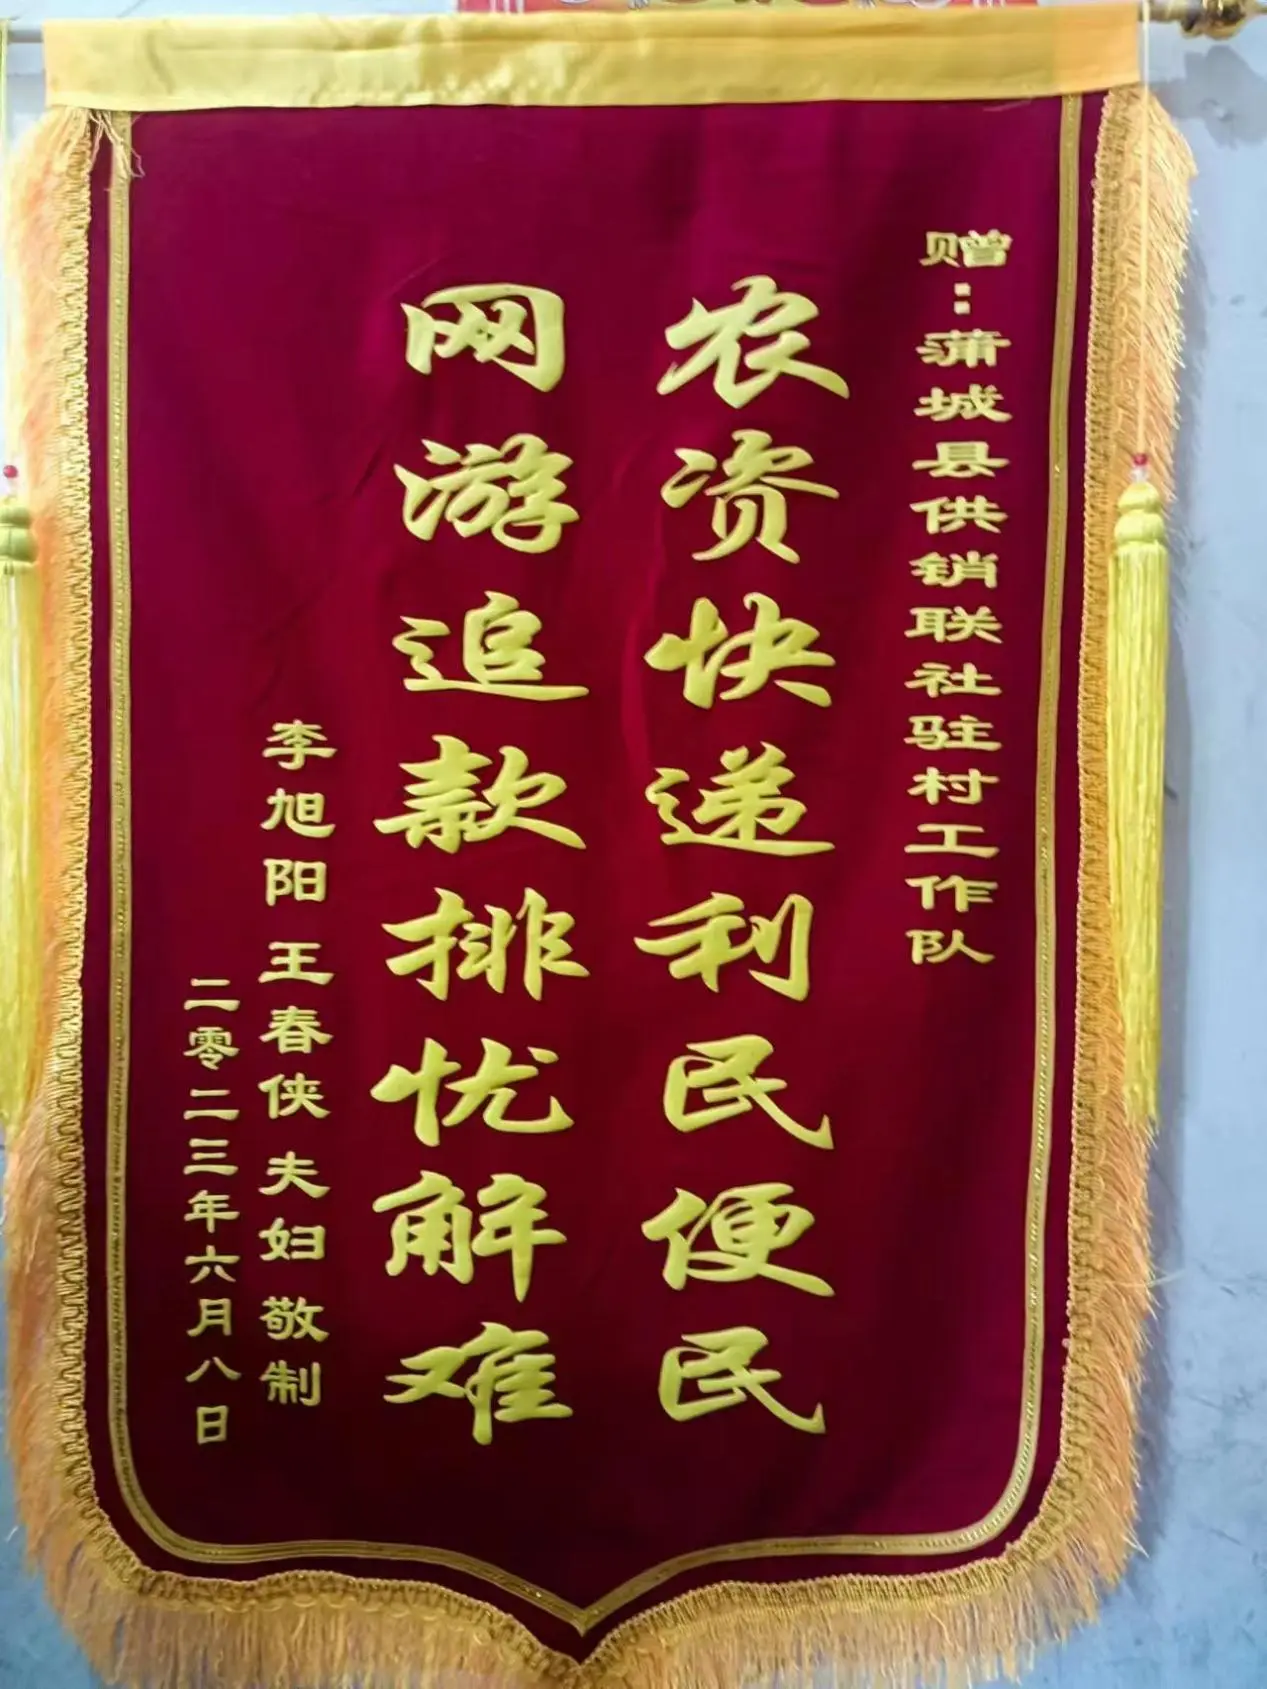 赠：蒲城县供销联社驻村工作队
农资快递利民便民
网游追款排忧解难
李旭阳 王春侠 夫妇 敬制
二零二三年六月八日